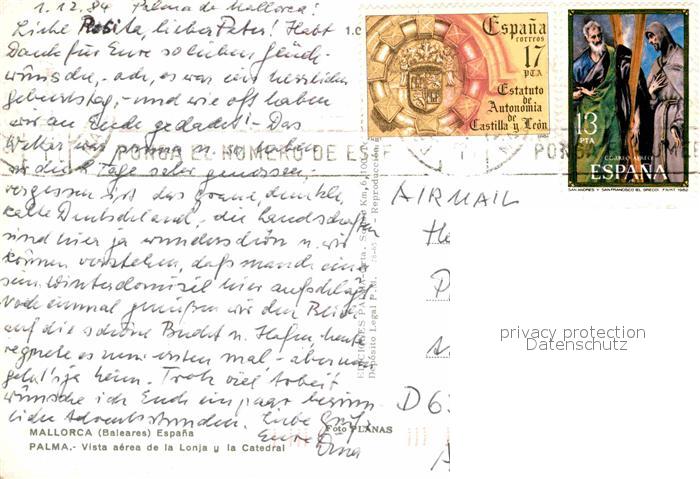 1.12.84 Palma de Mallorca!
Liebe Rosita, lieber Peter! Habt
Dank für Eure so lieben Glück-
wünsche, - ach, es war ein herrlicher
Geburtstag, - und wie oft haben
wir an Euch gedacht! - Das
Wetter war prima u. so haben
wir die Tage sehr genossen, -
vergessen ist das graue, dunkle,
kalte Deutschland, - die Landschaften
sind hier ja wunderschön u. wir
können verstehen, daß manch einer
sein Winterdomizil hier aufschlägt
Noch einmal genießen wir den Blick
auf die schöne Bucht u. Hafen, heute
regnete es zum ersten mal, - aber nun
geht's ja heim. Trotz viel Arbeit
wünsche ich Euch ein paar besinn-
liche Adventsstunden. Liebe Grüße
Eure
MALLORCA (Baleares) España
Foto PLANAS
PALMA.- Vista aérea de la Lonja y la Catedral
España
correos
17
PTA
Estatuto
de
Autonomía
de
Castilla y León
13
PTA
CORREO AEREO
ESPAÑA
SAN ANDRES Y SAN FRANCISCO (EL GRECO). F.N.M.T. 1982
PONGA EL NUMERO DE
PON
AIRMAIL
D 6
privacy protection
Datenschutz